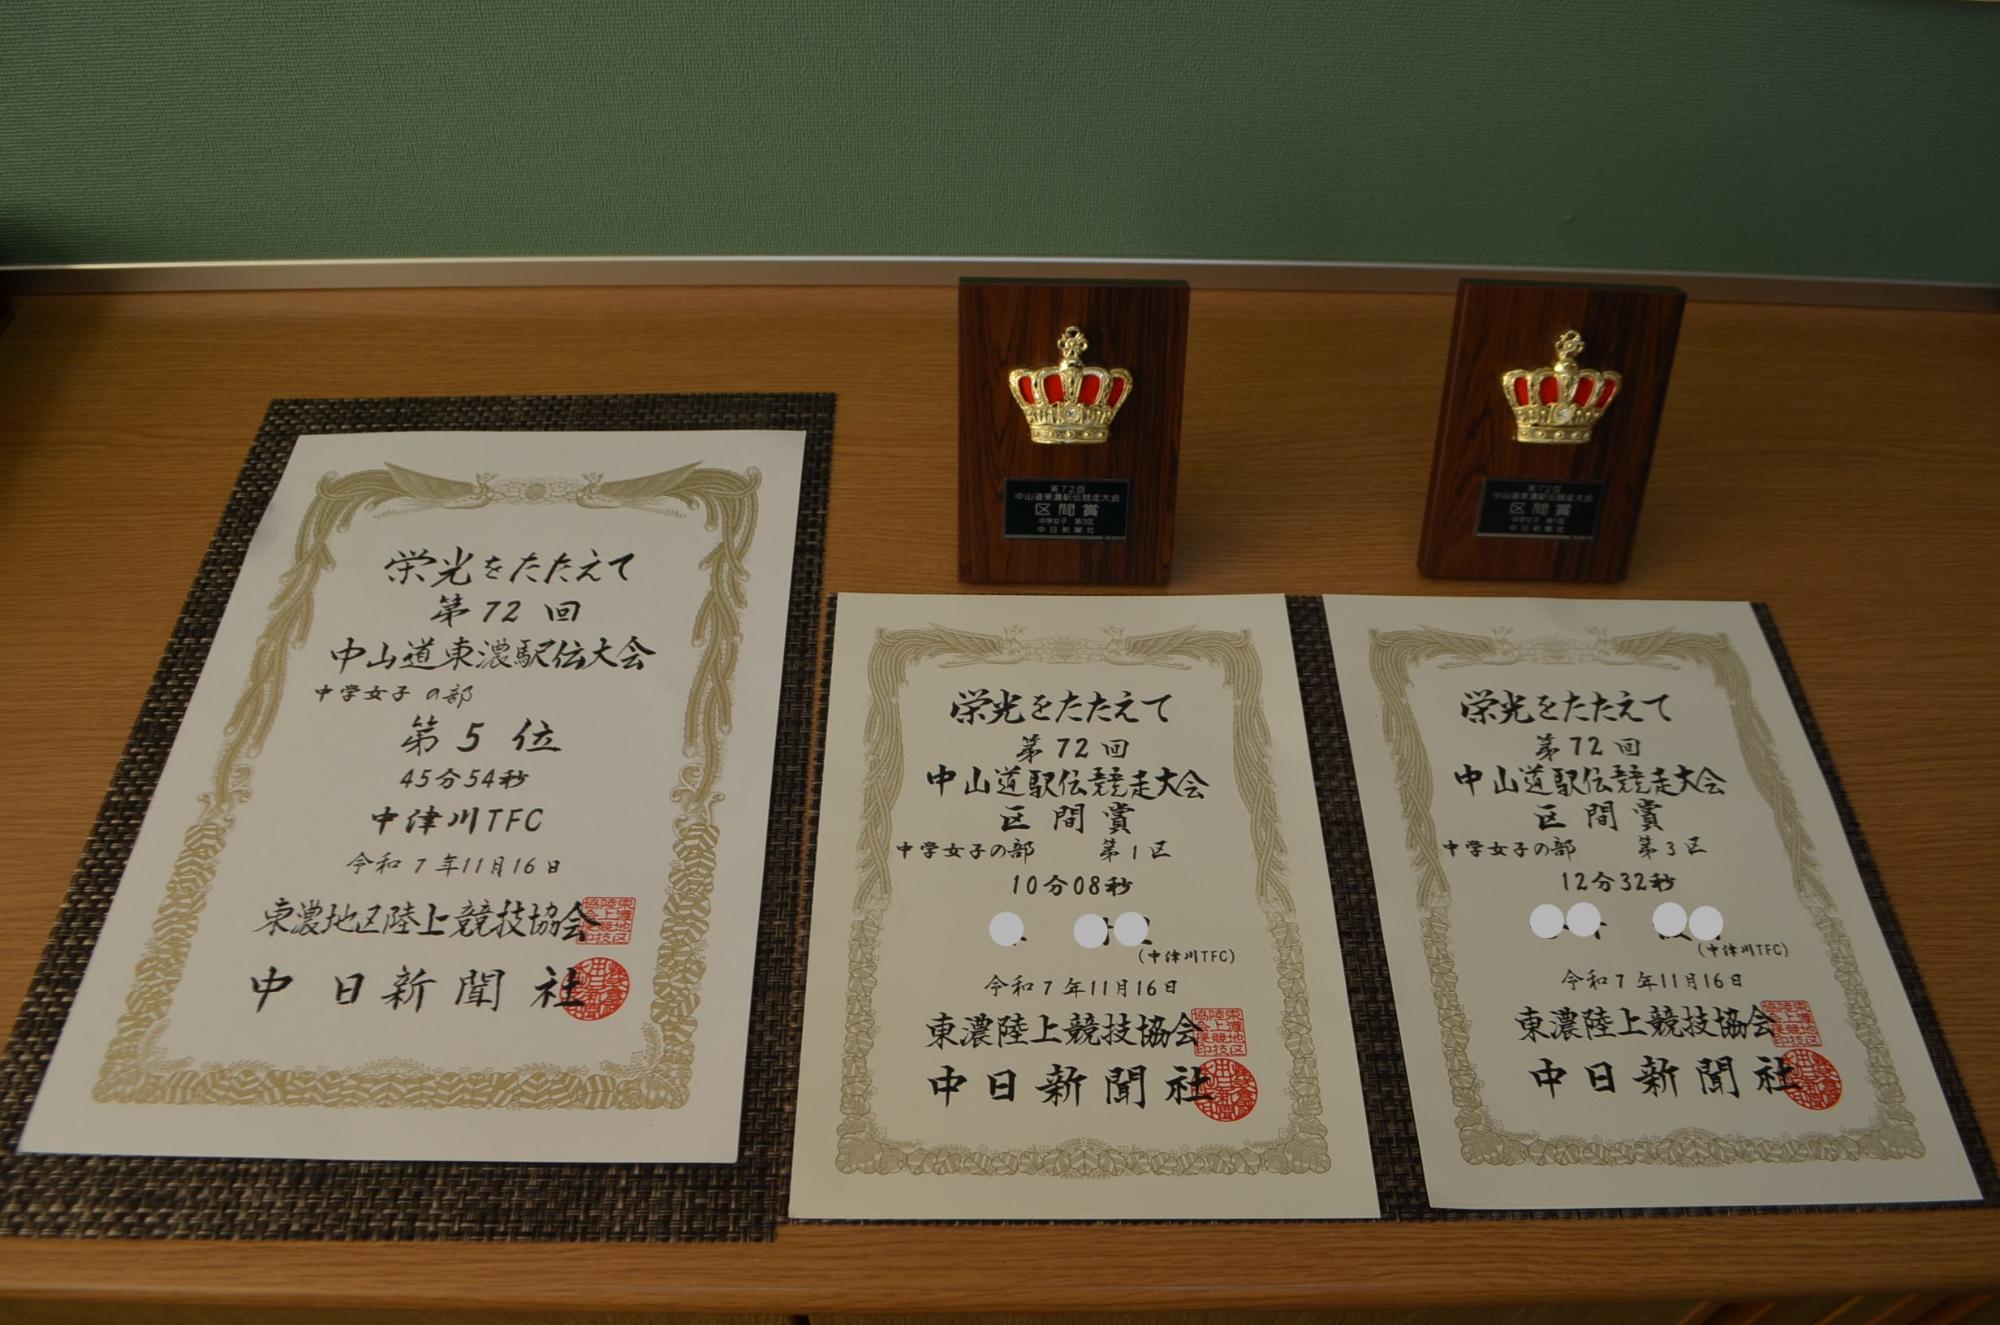 栄光をたたえて
第72回
中山道東濃駅伝大会
中学女子の部
第5位
45分54秒
中津川TFC
令和7年11月16日
東濃地区陸上競技協会
中日新聞社
第72回
中山道東濃駅伝競走大会
区間賞
中学女子 第3区
中日新聞社
第72回
中山道東濃駅伝競走大会
区間賞
中学女子 第1区
中日新聞社
栄光をたたえて
第72回
中山道駅伝競走大会
区間賞
中学女子の部 第1区
10分08秒
(中津川TFC)
令和7年11月16日
東濃陸上競技協会
中日新聞社
栄光をたたえて
第72回
中山道駅伝競走大会
区間賞
中学女子の部 第3区
12分32秒
(中津川TFC)
令和7年11月16日
東濃陸上競技協会
中日新聞社